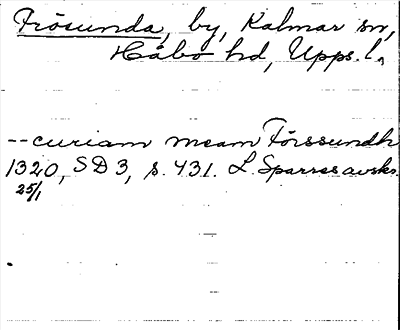 Frösunda, by, Kalmar sn,
Håbo hd, Upps. l.
-- curiam meamFörssundh
1320, SD 3, s. 431. L. Sparres avskr.
25/1